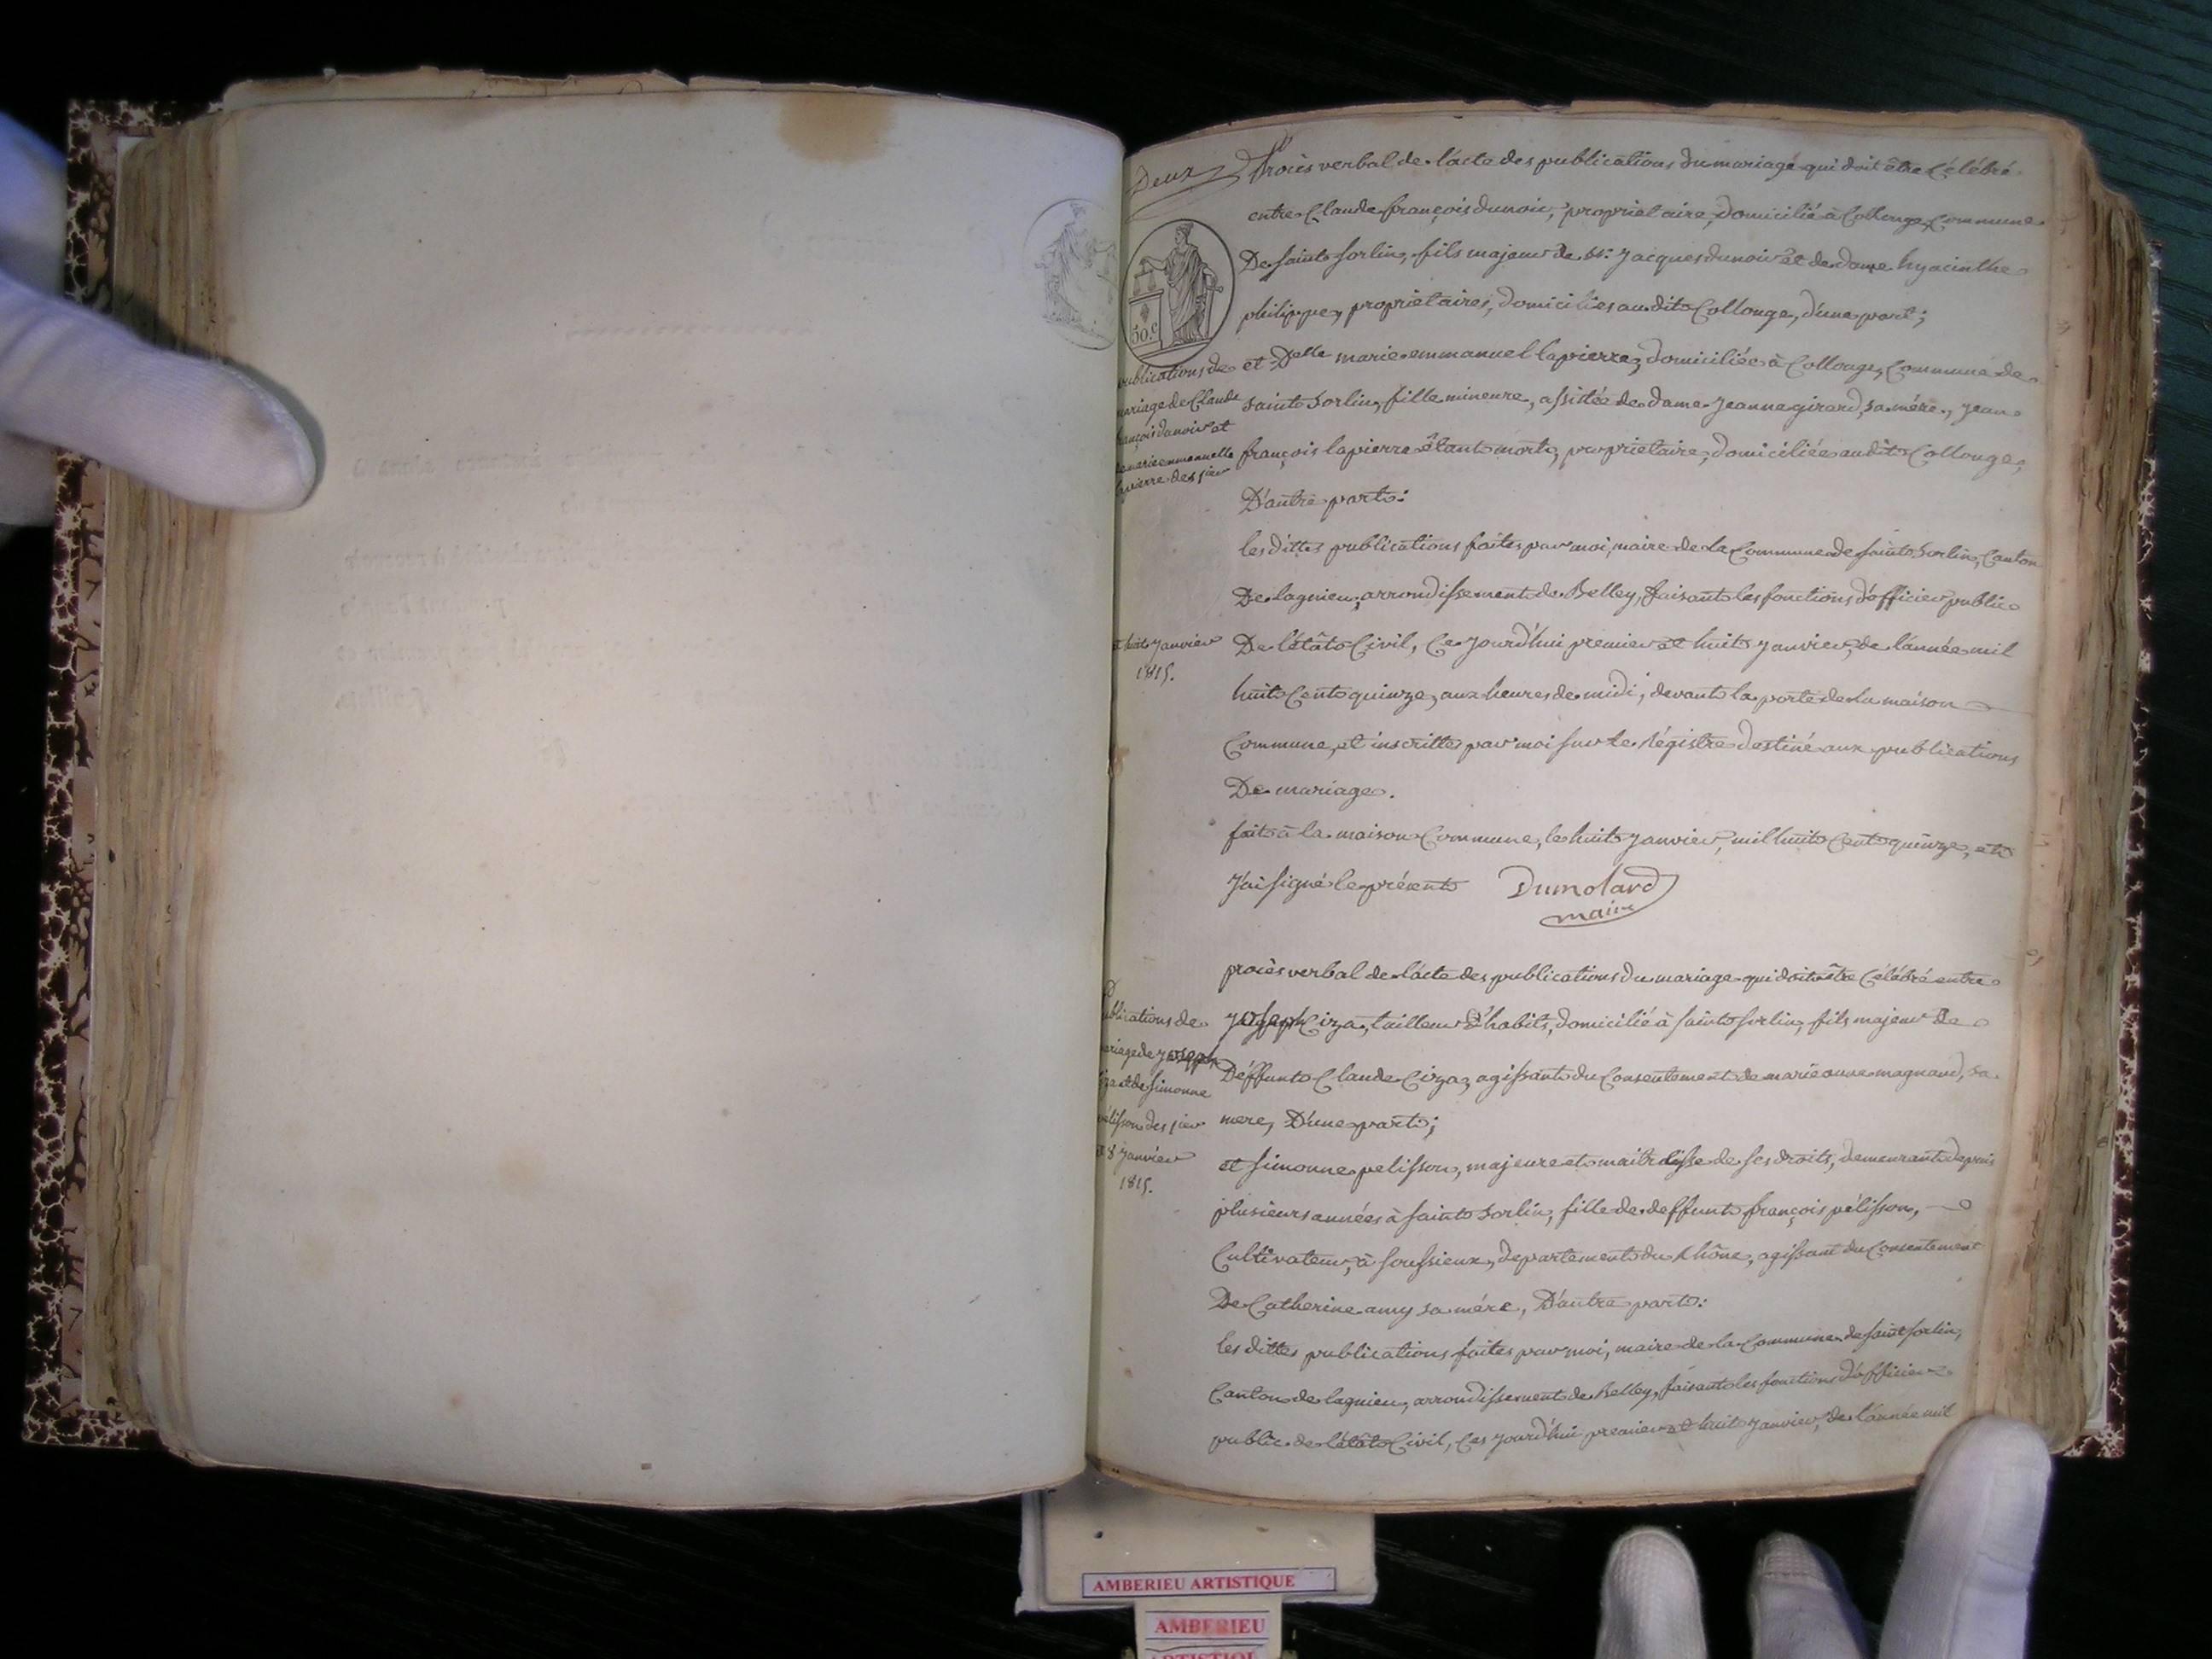 Deux
Procès verbal de l'acte des publications du mariage qui doit être Célébré
entre Claude françois dunoir, propriétaire, domicilié à Collonge, Commune
De saint sorlin, fils majeur de sr. jacques dunoir et de dame hyacinthe
philippe, propriétaires, domiciliés au dit Collonge, d'une part;
50.c
publications de
mariage de Claude
françois dunoir et
de marie emmanuelle
lapierre des 1er
et huit janvier
1815.
et Delle marie emmanuel lapierre, domiciliée à Collonge, Commune de
saint sorlin, fille mineure, assistée de dame jeanne girard, sa mére, jean
françois lapierre étant mort, propriétaire, domiciliée au dit Collonge,
D'autre part:
les dittes publications faites par moi, maire de la Commune de saint sorlin, Canton
De lagnieu, arrondissement de Belley, faisant les fonctions d'officier public
De l'étât Civil, Ce jourd'hui premier et huit janvier, de l'année mil
huit Cent quinze, aux heures de midi, devant la porte de la maison
Commune, et inscrittes par moi sur le régistre destiné aux publications
De mariage.
fait à la maison Commune, le huit janvier, mil huit Cent quinze, et
j'ai signé le présent Dumolard
maire
publications de
mariage de joseph
Ciza et de simonne
pélisson des 1er
et 8 janvier
1815.
procès verbal de l'acte des publications du mariage qui doit être Célébré entre
joseph Ciza, tailleur d'habits, domicilié à saint sorlin, fils majeur de
Déffunt Claude Ciza, agissant du Consentement de marie anne magnand, sa
mere, D'une part;
et simonne pelisson, majeure et maitresse de ses droits, demeurant depuis
plusieurs années à saint sorlin, fille de deffunt françois pélisson,
Cultivateur, à soussieux, département du rhône, agissant du Consentement
De Catherine amy sa mére, D'autre part:
les dittes publications faites par moi, maire de la Commune de saint sorlin,
Canton de lagnieu, arrondissement de Belley, faisant les fonctions d'officier
public de l'étât Civil, Ces jourd'hui premier et huit janvier, de l'année mil
AMBERIEU ARTISTIQUE
AMBERIEU
ARTISTIQUE